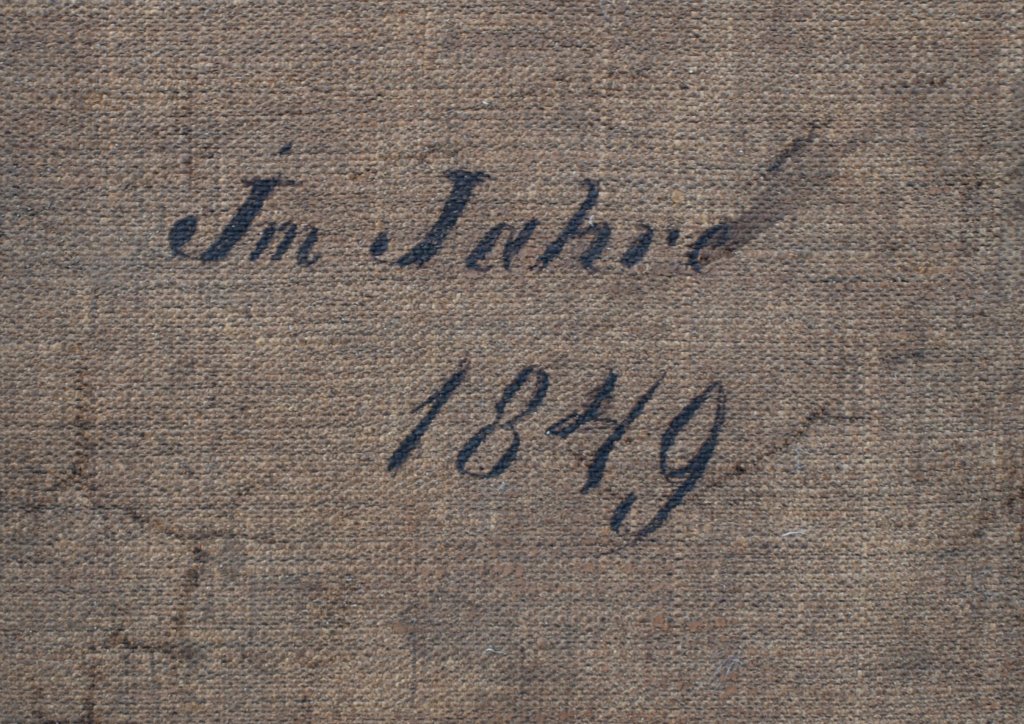 Im Jahre
1849